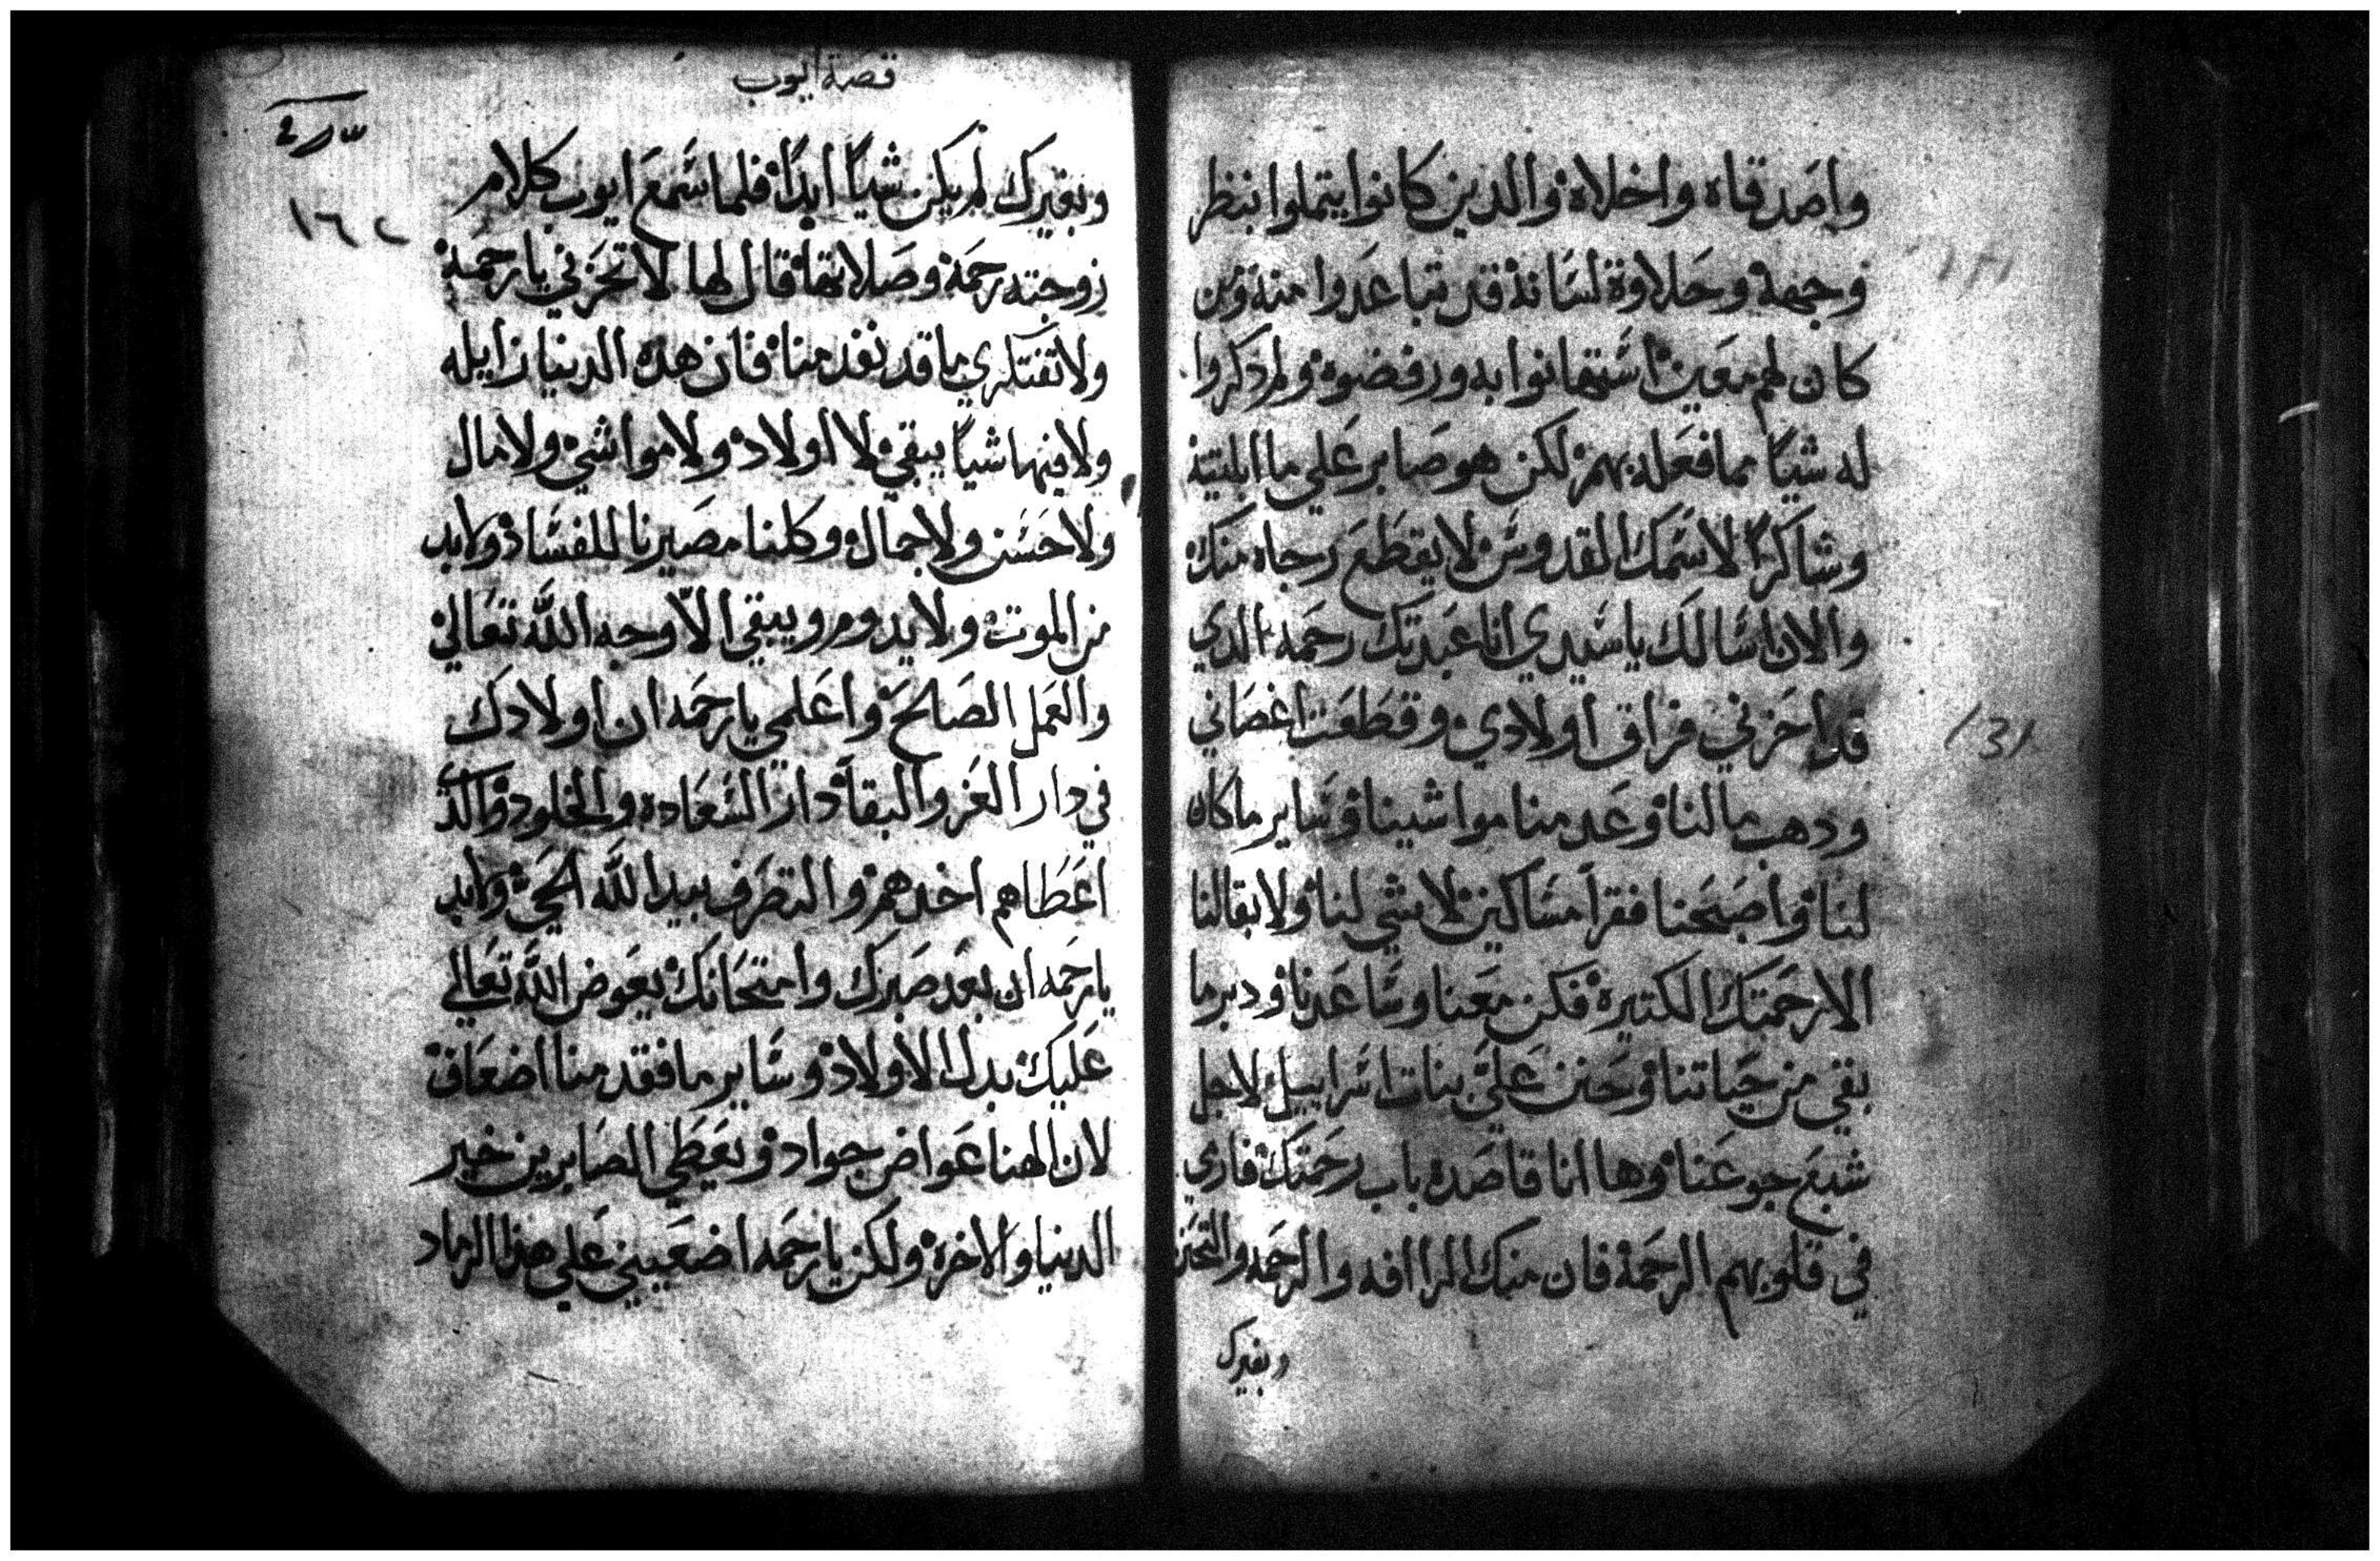 واصدقاه واخلاه والدين كانوا يتملوا بنظر
وجهه وحلاوة لسانه قد تباعدوا منه ومن
كان لهم معين استهانوا به ورفضوه ولم دكروا
له شياً مما فعله بهم لكن هو صابر علي ما ابليته
وشاكراً لاسمك القدوس لا يقطع رجاه منك
والان اسالك ياسيدي انا عبدتك رحمه الدي
قد احزني فراق اولادي وقطعت اغصاني
ودهب مالنا وعدمنا مواشينا وساير ماكان
لنا واصبحنا فقراً مساكين لاشي لنا ولا بقا لنا
الا رحمتك الكتيره فكن معنا وساعدنا ودبر ما
بقي من حياتنا وحنن علي بنات اسراييل لاجل
شبع جوعنا وها انا قاصده باب رحمتك فارمي
في قلوبهم الرحمة فان منك الراافه والرحمه والتحنن
وبغيرك
131
قصة ايوب
١٦٢
وبغيرك لم يكن شياً ابداً فلما سمع ايوب كلام
زوجته رحمة وصلاتها قال لها لا تحزني يارحمة
ولا تفتكري ما قد نفد منا فان هده الدنيا زايله
ولا فيها شياً يبقي لا اولاد ولا مواشي ولا مال
ولا حسن ولا جمال وكلنا مصيرنا للفساد ولابد
من الموت ولا يدوم ويبقي الاّ وجه الله تعالي
والعمل الصالح واعلمي يارحمه ان اولادك
في دار العز والبقاً دار السعاده والخلود والدي
اعطاهم اخدهم والتصرف بيد الله الحي ولابد
يارحمه ان بعد صبرك وامتحانك يعوض الله تعالي
عليك بدل الاولاد وساير ما فقد منا اضعاف
لان الهنا عواض جواد ويعطي الصابرين خير
الدنيا والاخرة ولكن يارحمه اضعيني علي هدا الرماد